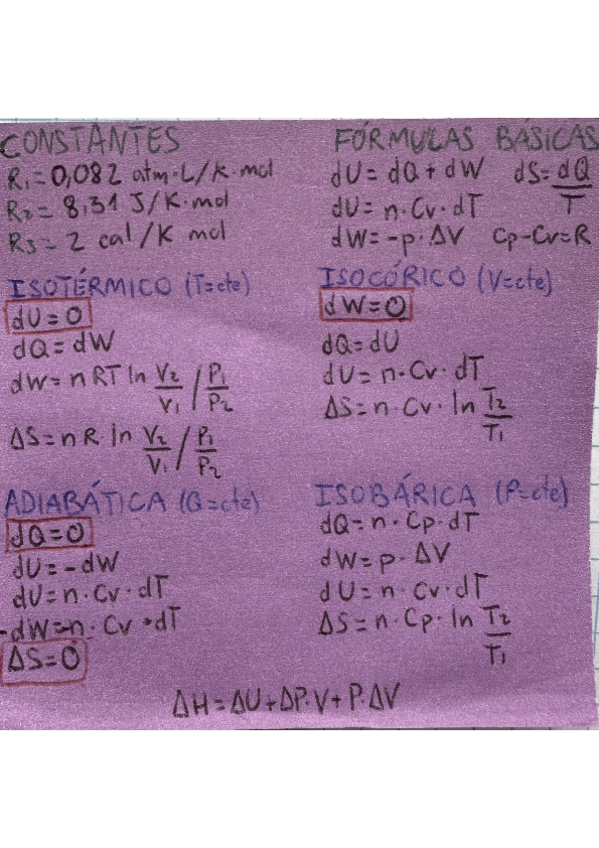 CONSTANTES
R₁=0,082 atm·L/K·mol
R₂= 8,31 J/K·mol
R₃= 2 cal/K mol
FÓRMULAS BÁSICAS
dU= dQ + dW dS= dQ/T
dU= n·Cv·dT
dW=-p·ΔV Cp-Cv=R
ISOTÉRMICO (T=cte)
dU=0
dQ=dW
dW=nRT ln V₂/V₁ / P₁/P₂
ΔS=nR·ln V₂/V₁ / P₁/P₂
ISOCÓRICO (V=cte)
dW=0
dQ=dU
dU=n·Cv·dT
ΔS=n·Cv·ln T₂/T₁
ADIABÁTICA (Q=cte)
dQ=0
dU=-dW
dU=n·Cv·dT
-dW=n·Cv·dT
ΔS=0
ISOBÁRICA (P=cte)
dQ=n·Cp·dT
dW=p·ΔV
dU=n·Cv·dT
ΔS=n·Cp·ln T₂/T₁
ΔH=ΔU+ΔP·V+P·ΔV